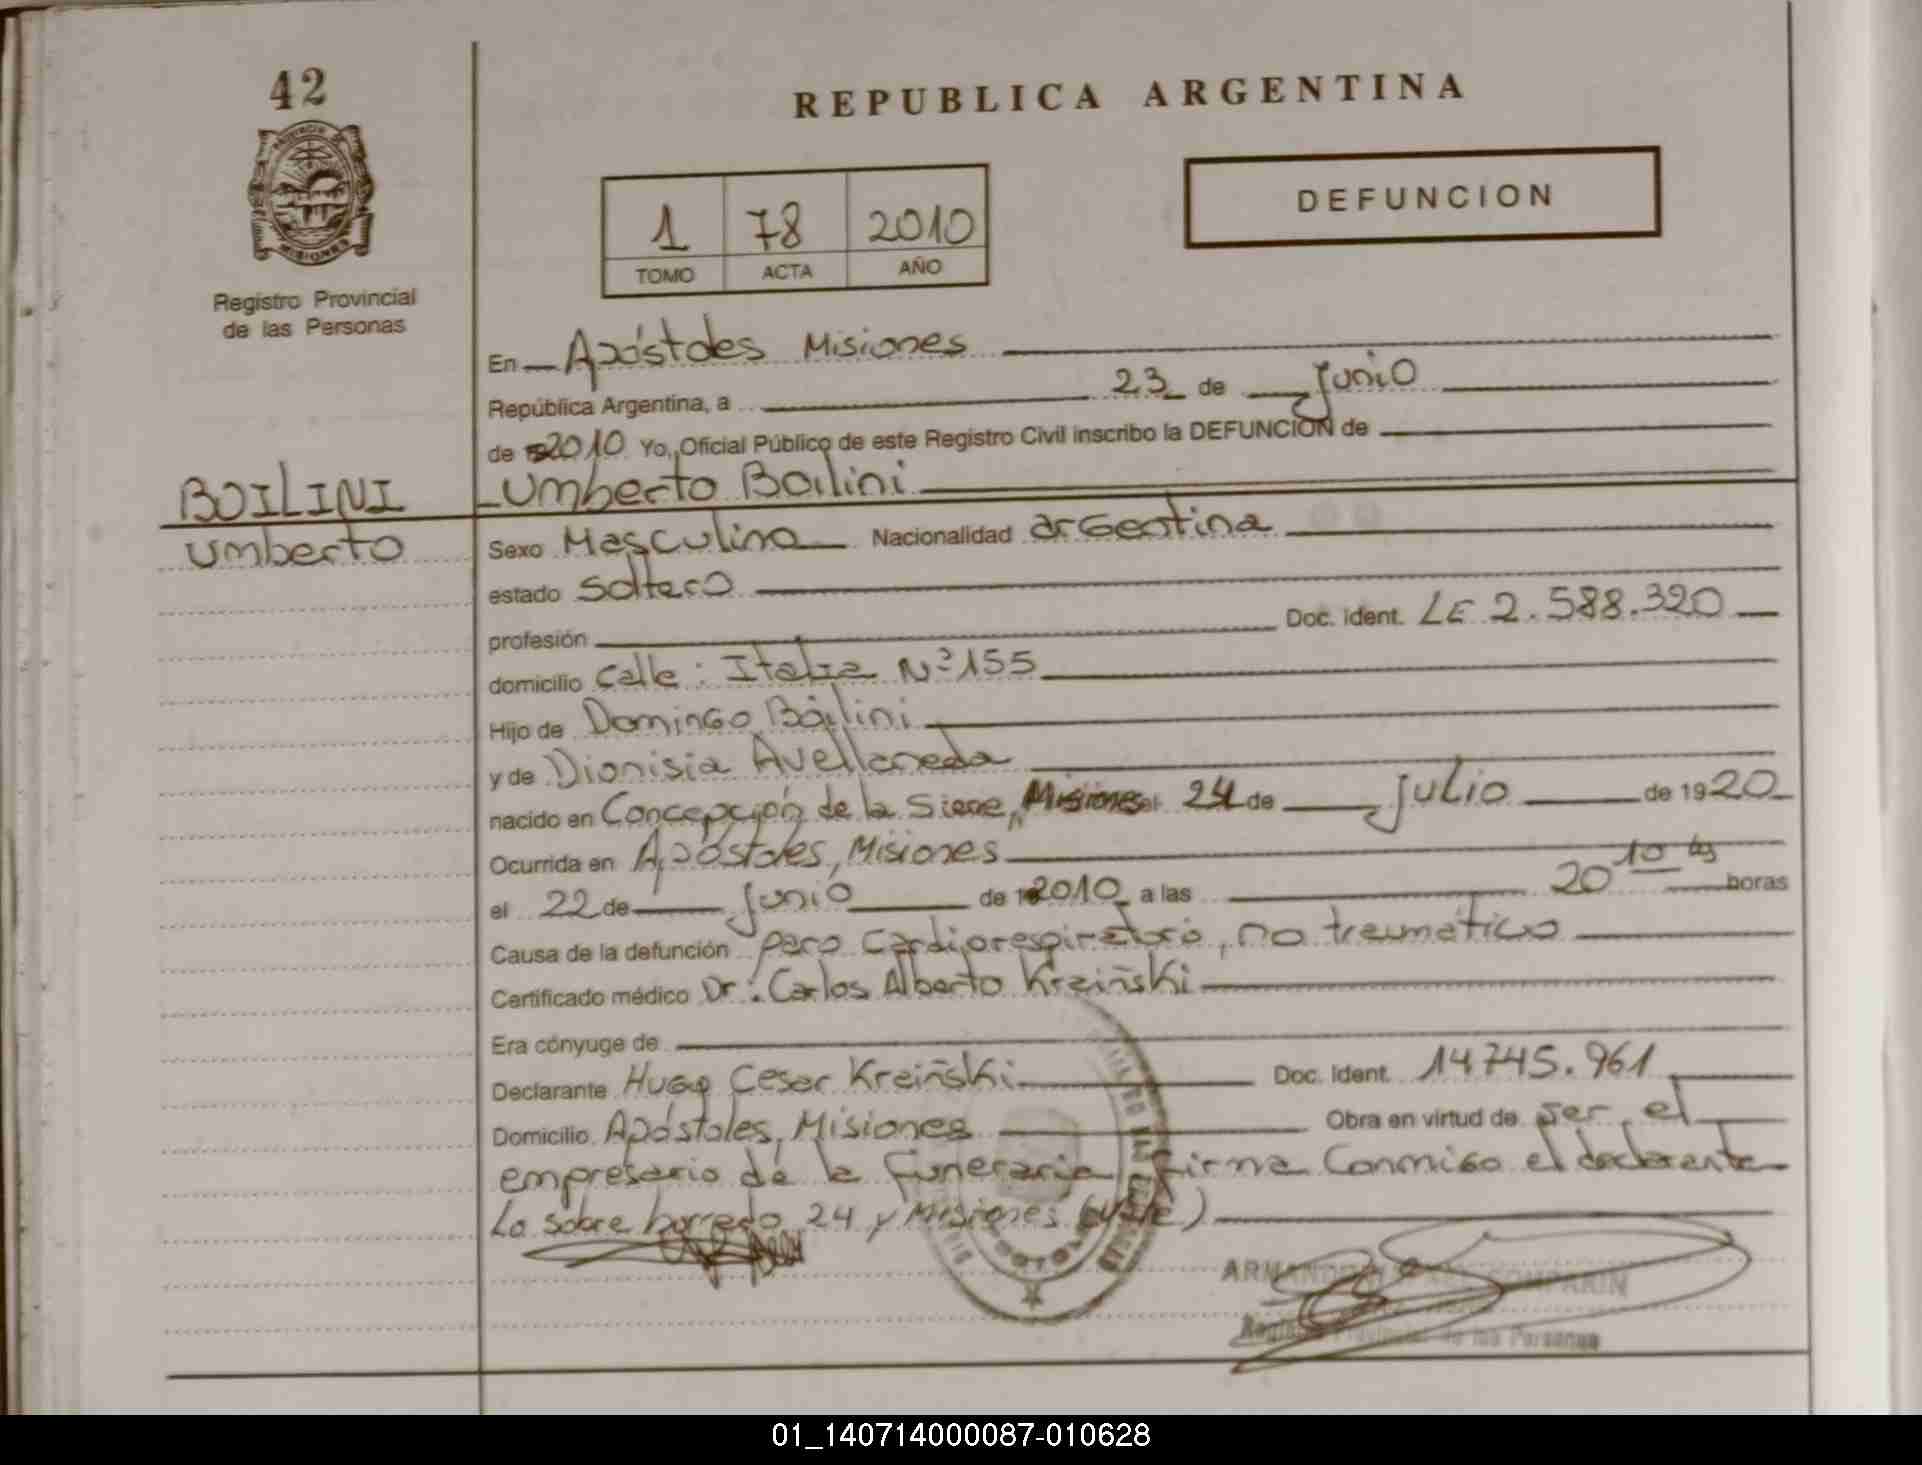 42
REPUBLICA ARGENTINA
PROVINCIA DE
MISIONES
Registro Provincial
de las Personas
1 78 2010
TOMO ACTA AÑO
DEFUNCION
En Apóstoles Misiones
República Argentina, a 23 de Junio
de 2010 Yo, Oficial Público de este Registro Civil inscribo la DEFUNCION de
BOILINI
Umberto
Umberto Boilini
Sexo Masculino Nacionalidad argentina
estado soltero
profesión Doc. ident. LE 2.588.320
domicilio Calle: Italia Nº 155
Hijo de Domingo Boilini
y de Dionisia Avellaneda
nacido en Concepción de la Siera, Misiones el 24 de Julio de 1920
Ocurrida en Apóstoles, Misiones
el 22 de Junio de 2010 a las 20 10 hs horas
Causa de la defunción paro Cardiorespiratorio, no traumático
Certificado médico Dr: Carlos Alberto Kreiñski
Era cónyuge de
Declarante Hugo Cesar Kreiñski Doc. Ident. 14745.961
Domicilio Apóstoles, Misiones Obra en virtud de ser el
empresario de la Funeraria firma Conmigo el declarante
Lo sobre borrado 24 y Misiones (Vale)
ARMANDO COMPARIN
Registro Provincial de las Personas
01_140714000087-010628